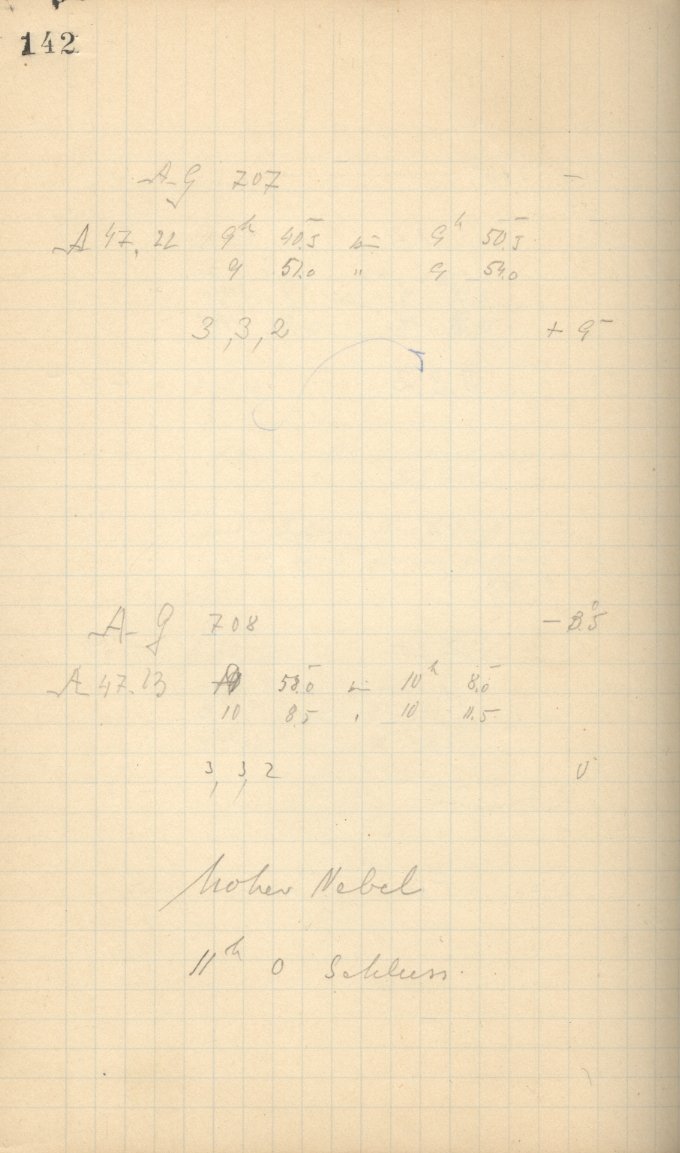 142
AG 707 –
A 47.22 9h 40.5 bis 9h 50.5
9 51.0 " 9 54.0
3, 3, 2 + 9
AG 708 – 8.5
A 47.13 58.0 bis 10h 8.0
10 8.5 " 10 11.5
3, 3, 2 0
hoher Nebel
11h 0 Schluss.